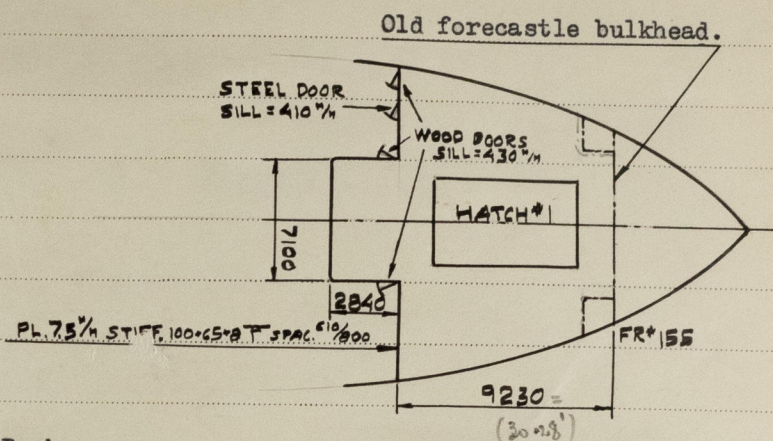 Old forecastle bulkhead.
STEEL DOOR
SILL = 410 M/M
WOOD DOORS
SILL = 430 M/M
HATCH #1
7100
2840
PL. 7.5 M/M STIFF. 100·65·8 SPAC. 610/800
FR# 155
9230 =
(30.28')